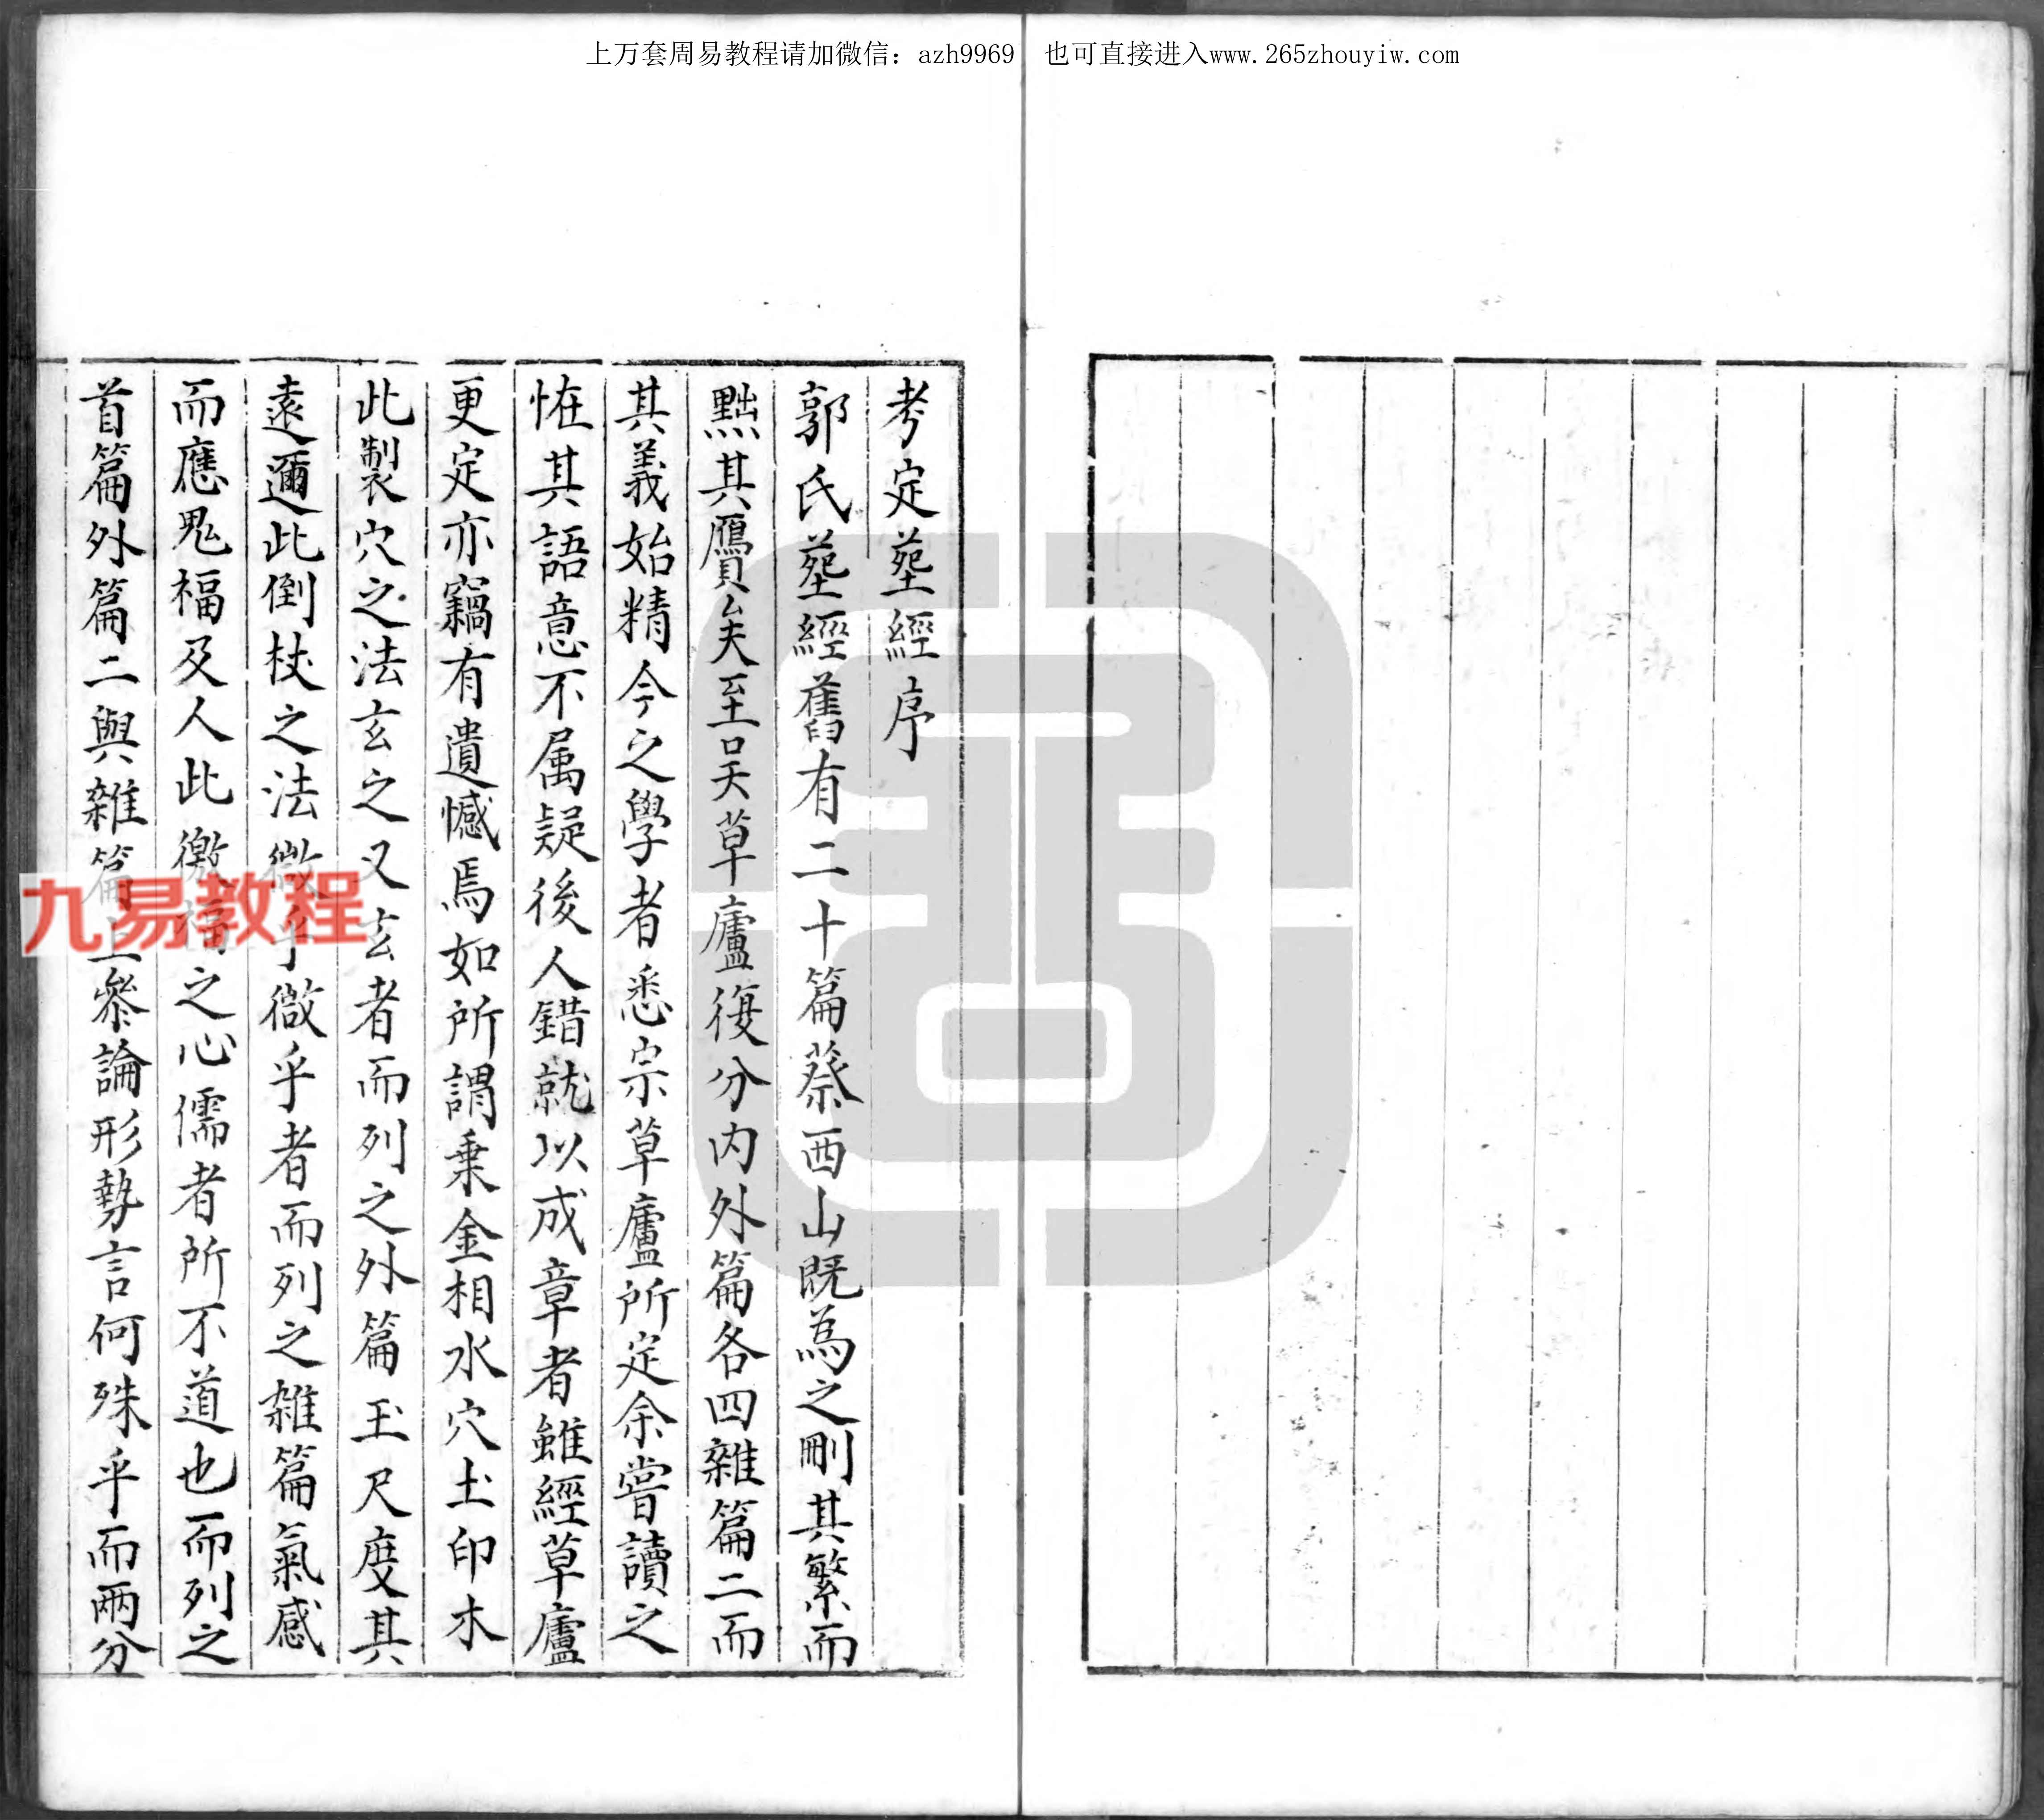 上万套周易教程请加微信：azh9969 也可直接进入www.265zhouyiw.com
考定塟經序
郭氏塟經舊有二十篇蔡西山既為之刪其繁而
黜其贋矣至吴草廬復分内外篇各四雜篇二而
其義始精今之學者悉宗草廬所定余嘗讀之
恠其語意不属疑後人錯就以成章者雖經草廬
更定亦竊有遺憾焉如所謂乗金相水穴土印木
此製穴之法玄之又玄者而列之外篇玉尺度其
遠邇此倒杖之法微乎微乎者而列之雜篇氣感
而應鬼福及人此徼福之心儒者所不道也而列之
首篇外篇二與雜篇上叅論形勢言何殊乎而兩分
九易教程